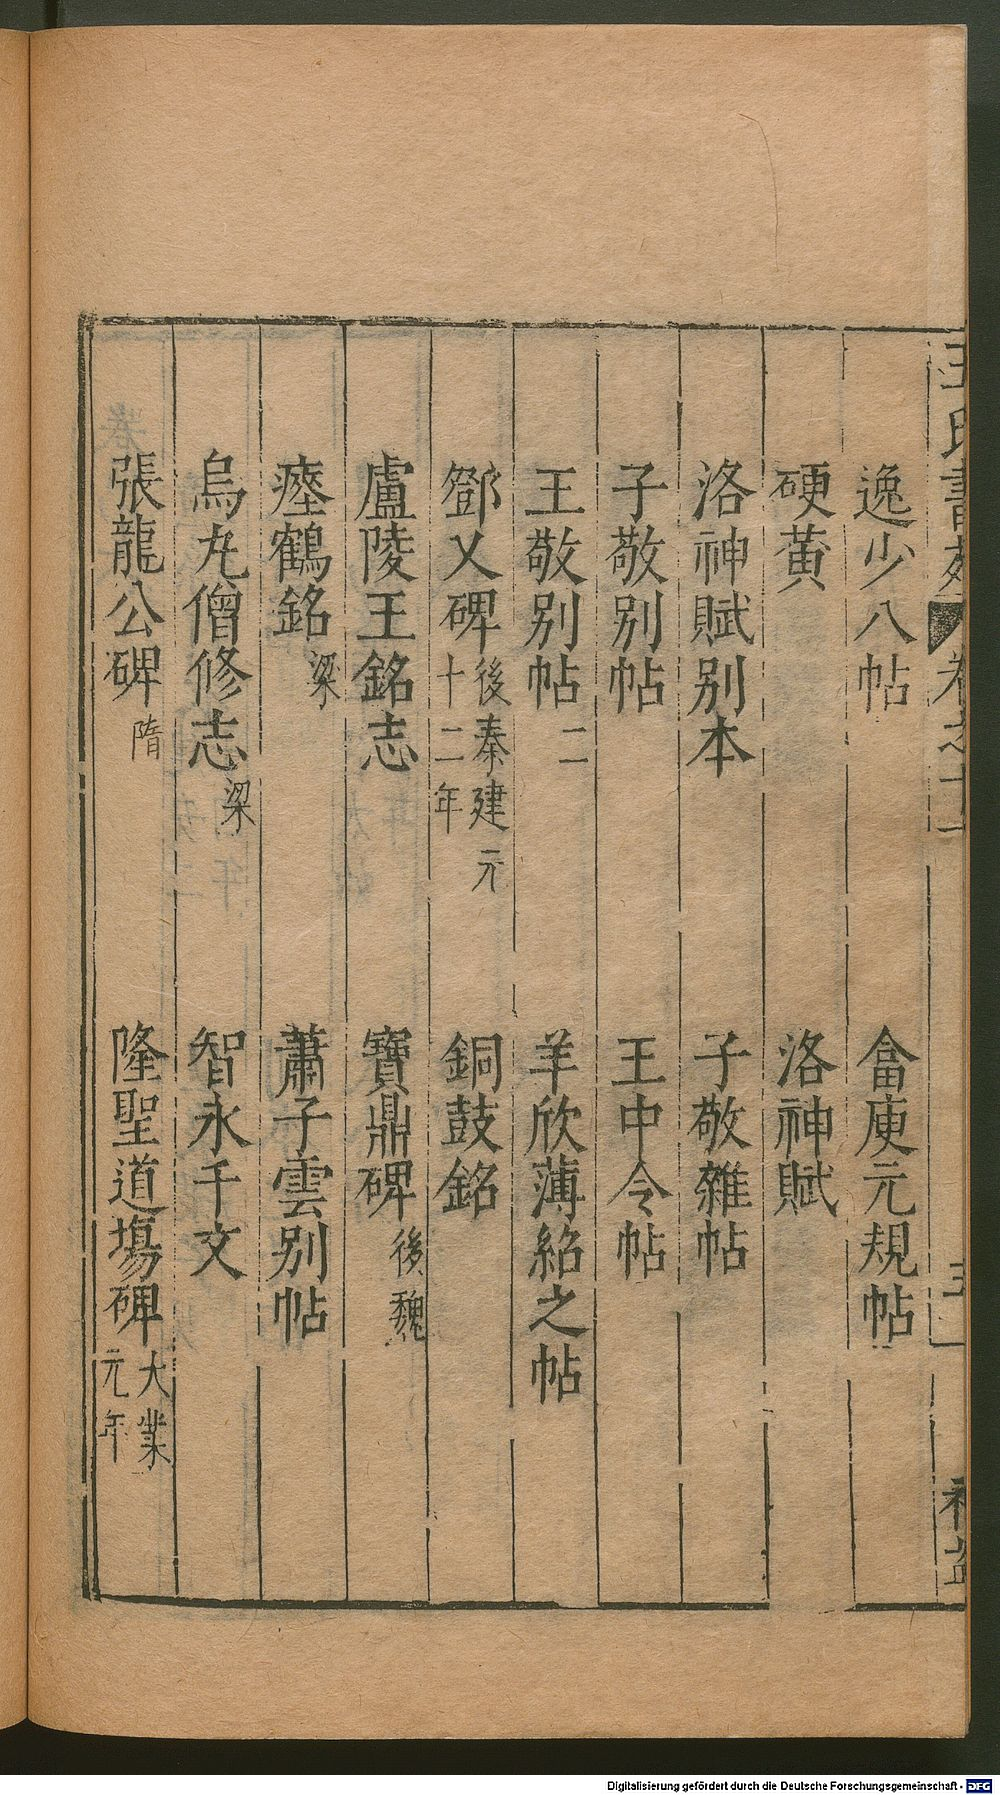 王氏書苑 卷之十 補益
逸少八帖 畣庾元規帖
硬黃 洛神賦
洛神賦别本 子敬雜帖
子敬别帖 王中令帖
王敬别帖二 羊欣薄紹之帖
鄧乂碑後秦建元十二年 銅鼓銘
盧陵王銘志 寶鼎碑後魏
瘞鶴銘梁 蕭子雲别帖
烏丸僧修志梁 智永千文
張龍公碑隋 隆聖道場碑大業元年
Digitalisierung gefördert durch die Deutsche Forschungsgemeinschaft - DFG